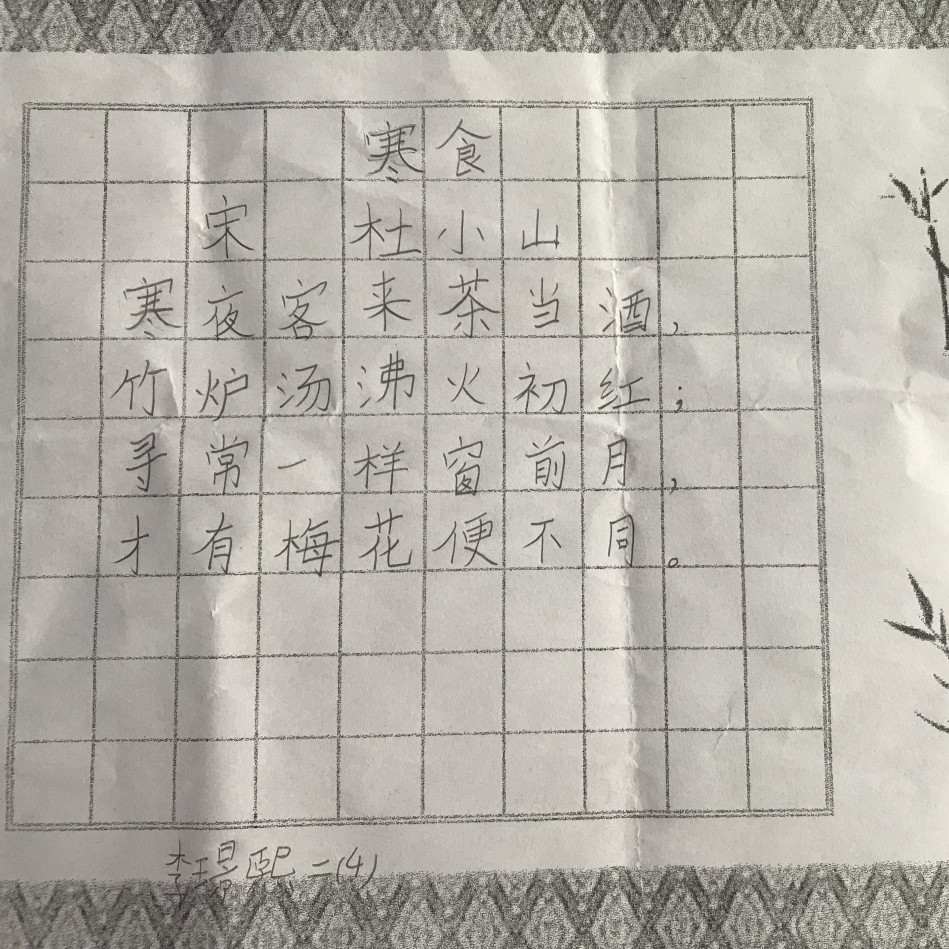 寒食
宋 杜小山
寒夜客来茶当酒，
竹炉汤沸火初红；
寻常一样窗前月，
才有梅花便不同。
李 熙 二(4)